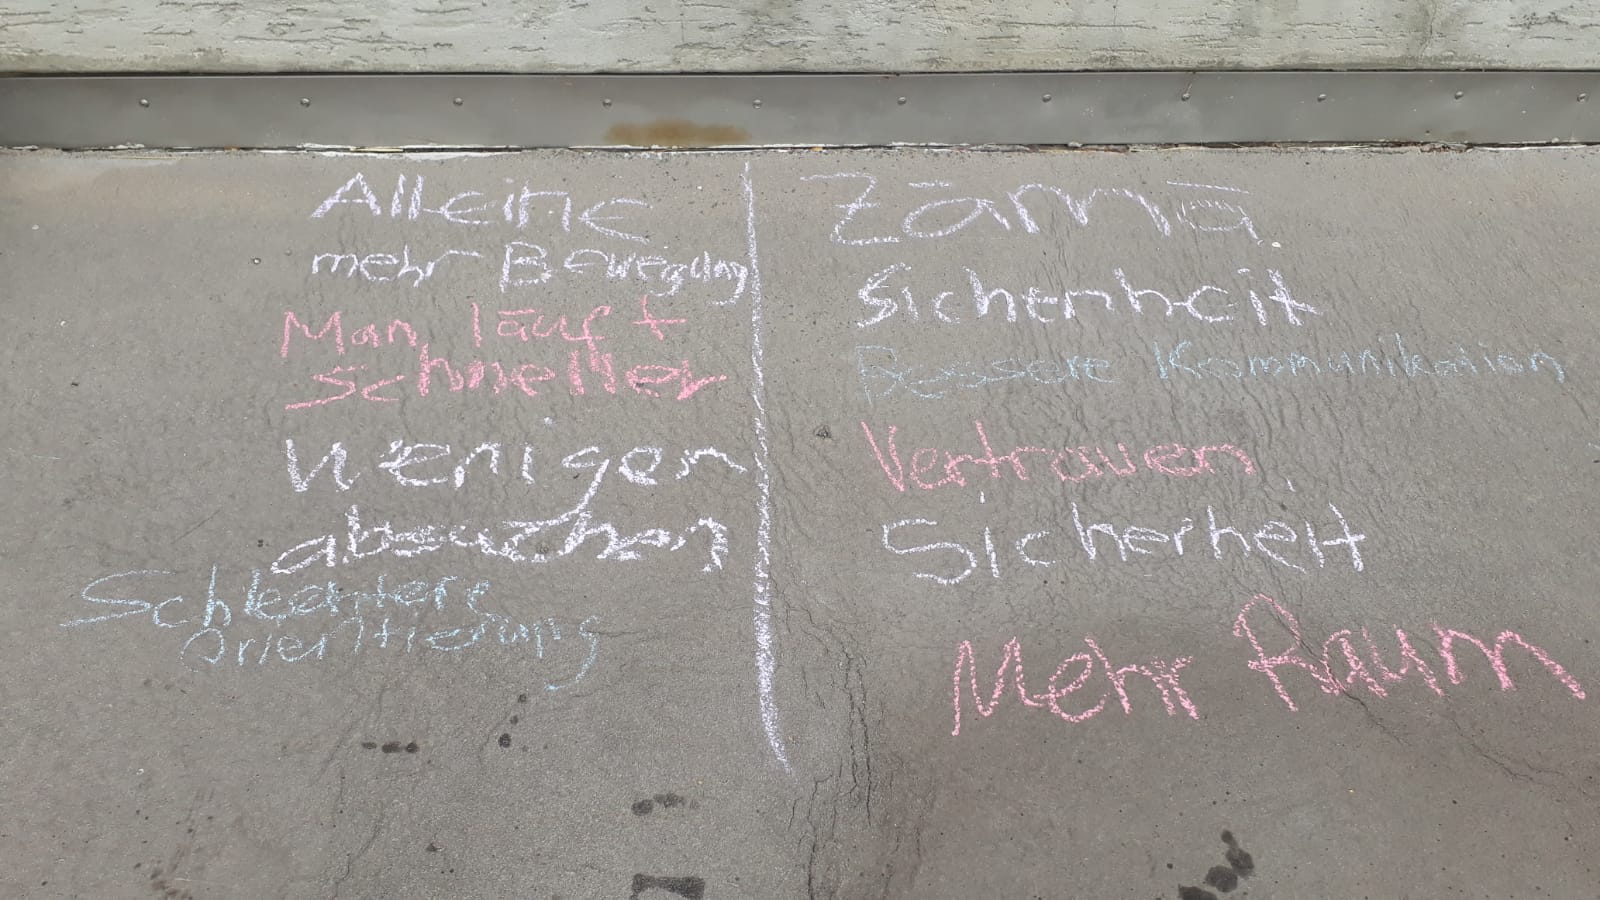 Alleine
mehr Bewegung
Man läuft
schneller
Weniger
absuchen
Schlechtere
Orientierung
Zämä
Sicherheit
Bessere Kommunikation
Vertrauen
Sicherheit
Mehr Raum